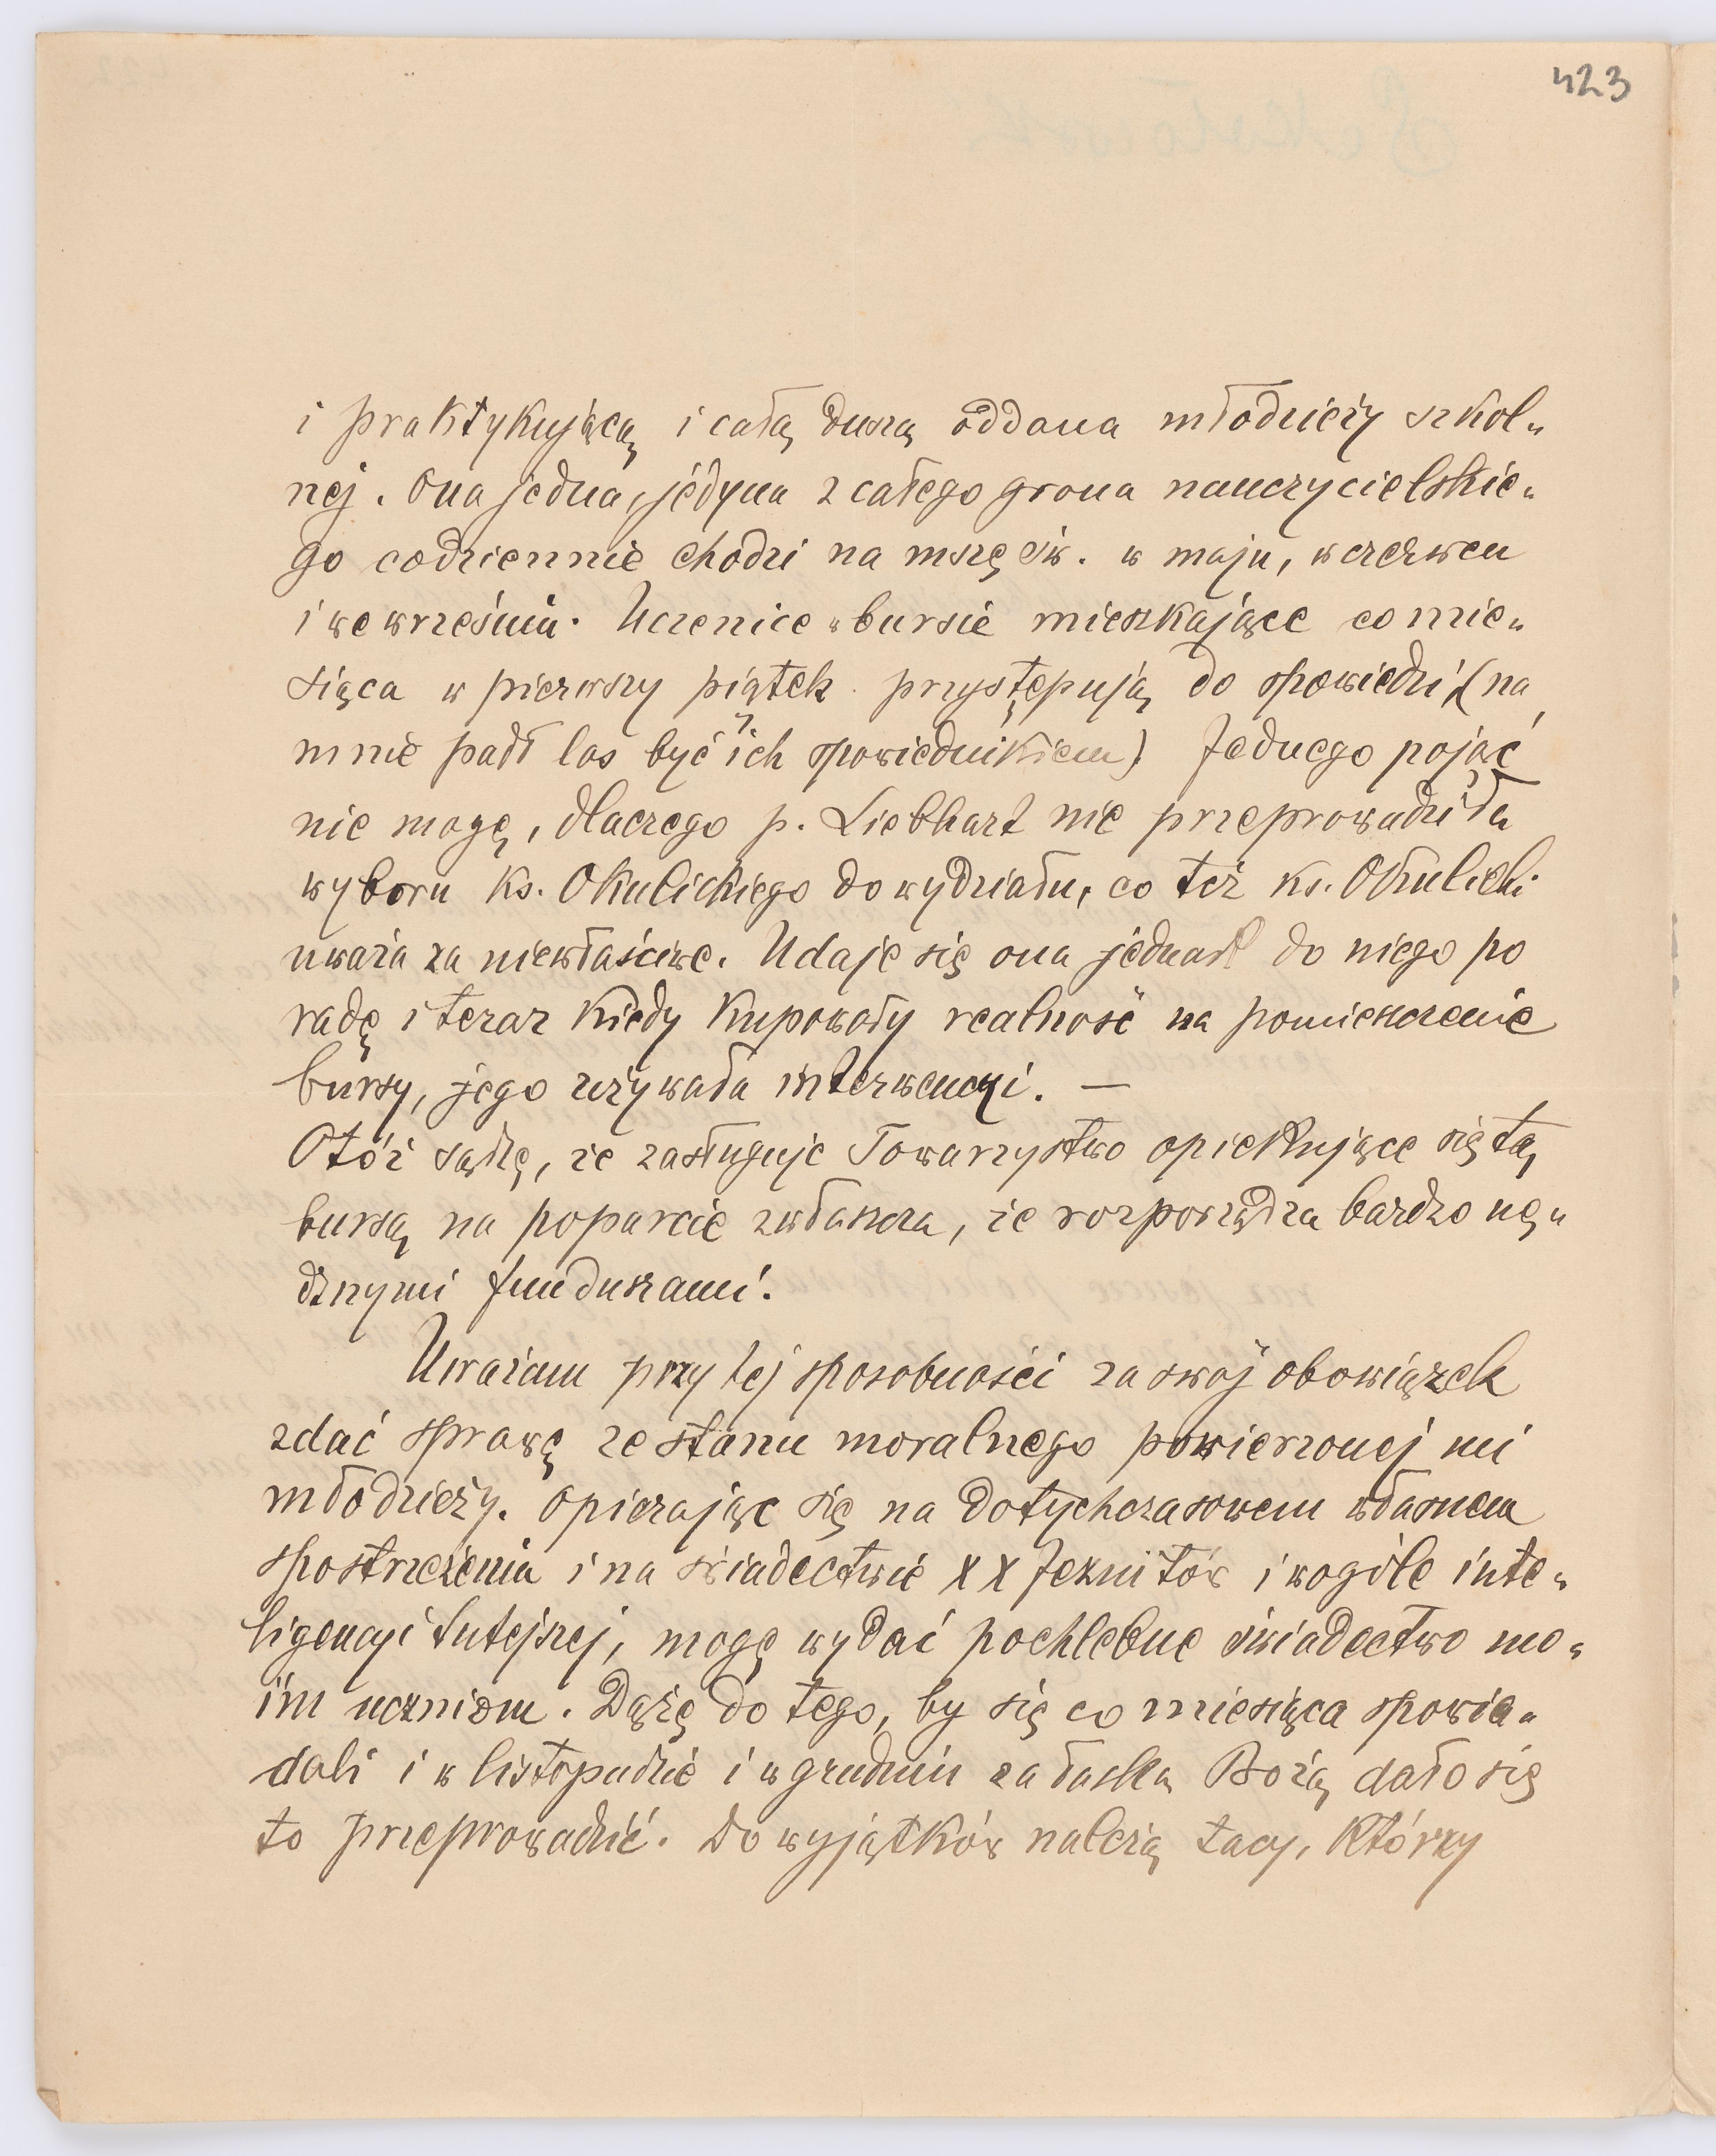 423
i praktykującą i całą duszą oddana młodzieży szkol„
nej. Ona jedna, jedyna z całego grona nauczycielskie„
go codziennie chodzi na mszę św. w maju, w czerwcu
i we wrześniu. Uczenice w bursie mieszkające co mie„
siąca w pierwszy piątek przystępują do spowiedzi, (na
mnie padł los być ich spowiednikiem) Jednego pojąć
nie mogę, dlaczego p. Liebhart nie przeprowadziła
wyboru ks. Okulickiego do wydziału, co też ks. Okulicki
uważa za niewłaściwe. Udaje się ona jednak do niego po
radę i teraz kiedy kupowały realność na pomieszczenie
bursy, jego wzywała interwencyi. —
Otóż sądzę, że zasługuje Towarzystwo opiekujące się tą
bursą na poparcie zwłaszcza, że rozporządza bardzo nę„
dznymi funduszami.
Uważam przy tej sposobności za swój obowiązek
zdać sprawę ze stanu moralnego powierzonej mi
młodzieży. Opierając się na dotychczasowem własnem
spostrzeżeniu i na świadectwie XX Jezuitów i wogóle inte„
ligencyi tutejszej, mogę wydać pochlebne świadectwo mo„
im uczniom. Dążę do tego, by się co miesiąca spowia„
dali i w listopadzie i w grudniu za łaską Bożą dało się
to przeprowadzić. Do wyjątków należą tacy, którzy